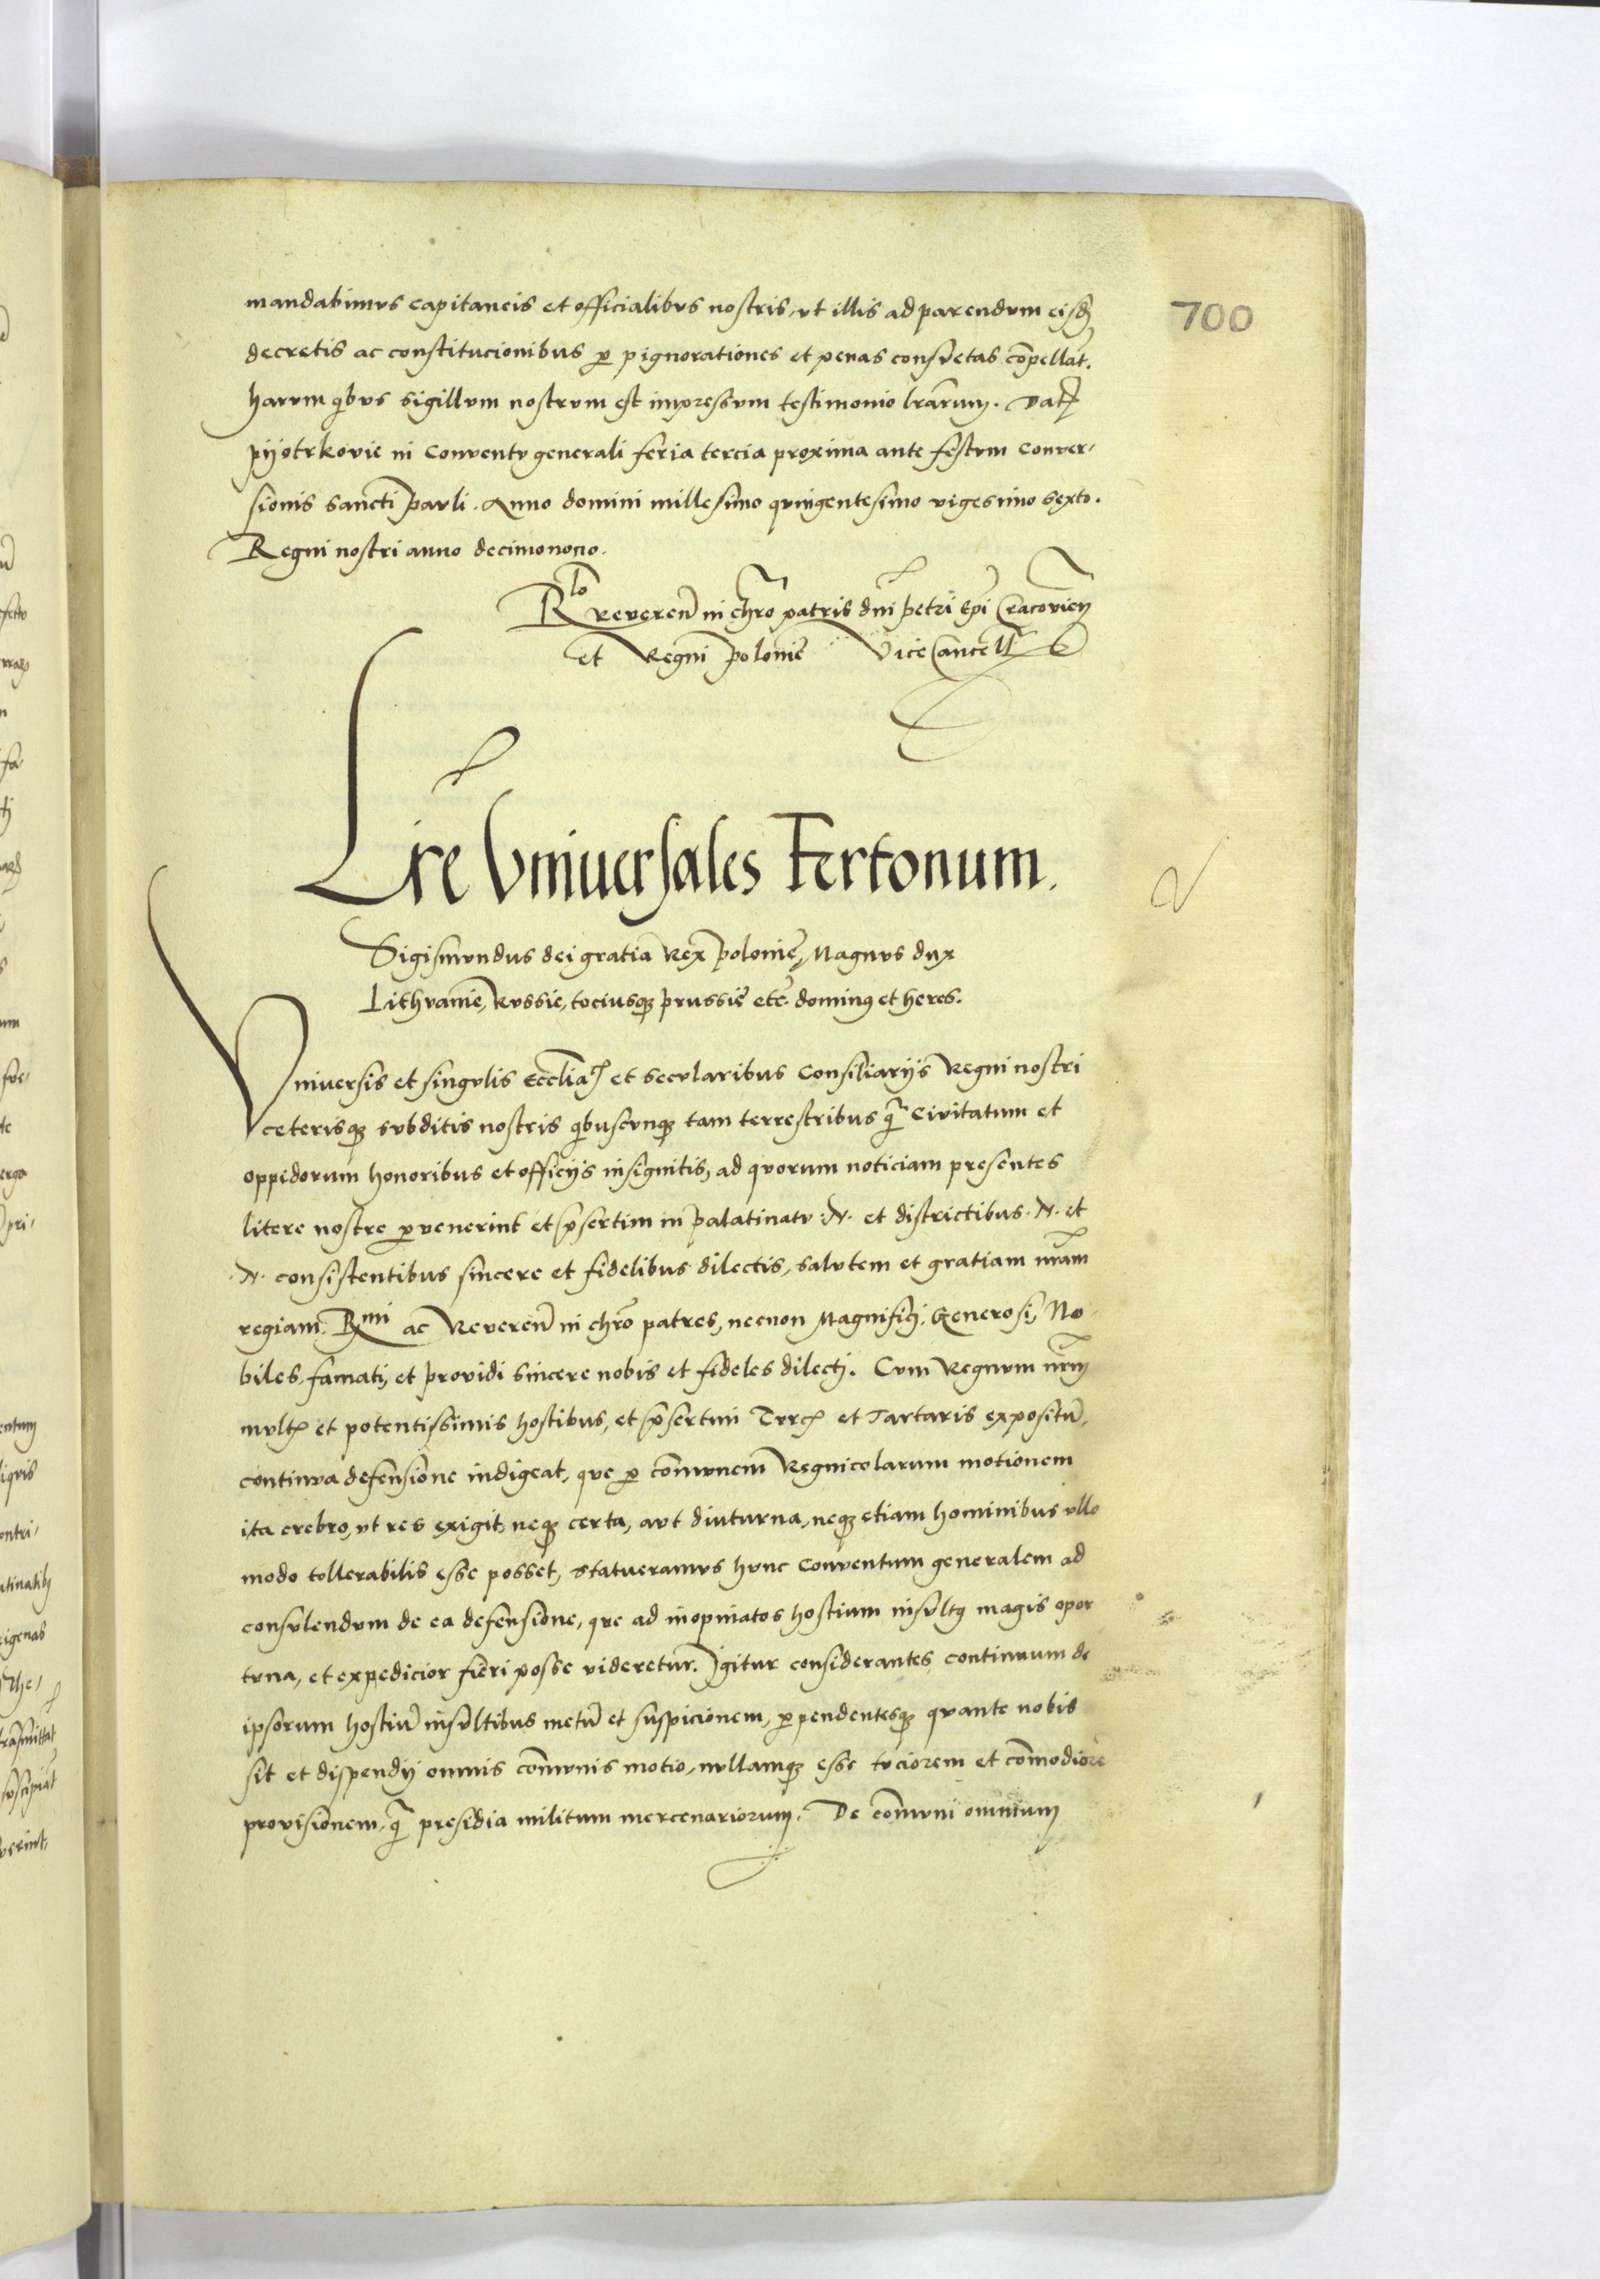 mandabimus capitaneis et officialibus nostris, ut illis ad parendum eisd
decretis ac constitucionibus ꝑ pignorationes et penas consuetas cōpellāt.
harum qibus sigillum nostrum est impressum testimonio lrārum. Datꝫ
pyotrkovie in Conventu generali feria tercia proxima ante festum Conver-
sionis sancti pauli. Anno domini millesimo quingentesimo vigesimo sexto.
Regni nostri anno decimonono.
Rlo reveren in chro patris dni petri Epi Cracovien
et Regni polonie Vice Cancell
700
Lre Vniuersales Fertonum.
Sigismundus dei gratia Rex polonie, Magnus dux
Lithvanie, Russie, tociusqꝫ prussie etc. dominꝰ et heres.
Vniversis et singulis Ecclia et secularibus Consiliarijs Regni nostri
ceterisqꝫ subditis nostris qibuscunqꝫ tam terrestribus q̄ Civitatum et
oppidorum honoribus et officijs insignitis, ad quorum noticiam presentes
litere nostre ꝑvenerint et p̄sertim in palatinatu .N. et districtibus .N. et
.N. consistentibus sincere et fidelibus dilectis, salutem et gratiam nrām
regiam. Rmi ac Reveren in chrō patres, necnon Magnifici, Generosi, No-
biles, famati, et providi sincere nobis et fideles dilecti. Cum Regnum nrm
mult et potentissimis hostibus, et p̄sertim Turc et Tartaris expositū,
continua defensione indigeat, que ꝑ cōmunem Regnicolarum motionem
ita crebro, ut res exigit, neqꝫ certa, aut diuturna, neqꝫ etiam hominibus ullo
modo tollerabilis esse posset, statueramus hunc Conventum generalem ad
consulendum de ea defensione, que ad inopinatos hostium insultꝰ magis opor
tuna, et expedicior fieri posse videretur. Igitur considerantes continuum de
ipsorum hostiū insultibus metū et suspicionem, ꝑpendentesqꝫ quante nobis
sit et dispendij omnis cōmunis motio, nullamqꝫ esse tuciorem et cōmodiorē
provisionem, q̄ presidia militum mercenariorum. De cōmuni omnium